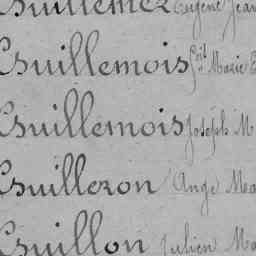 Guillemez Eugène Jean
Guillemois Marie
Guillemois Joseph M
Guilleron Ange Ma
Guillon Julien Ma